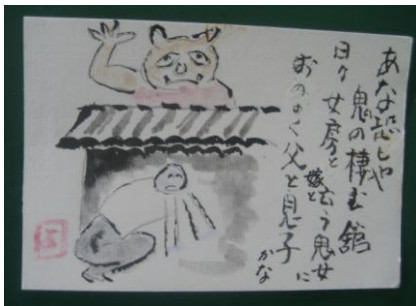 あな恐しや
鬼の棲む舘
日々女房と
嫁と云う鬼女に
おののく父と息子
かな